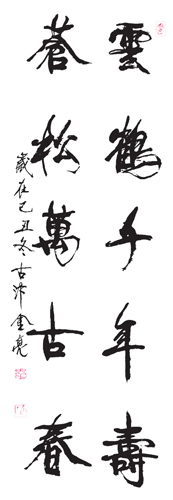 雲鶴千年壽
蒼松萬古春
歲在己丑冬古汴金亮